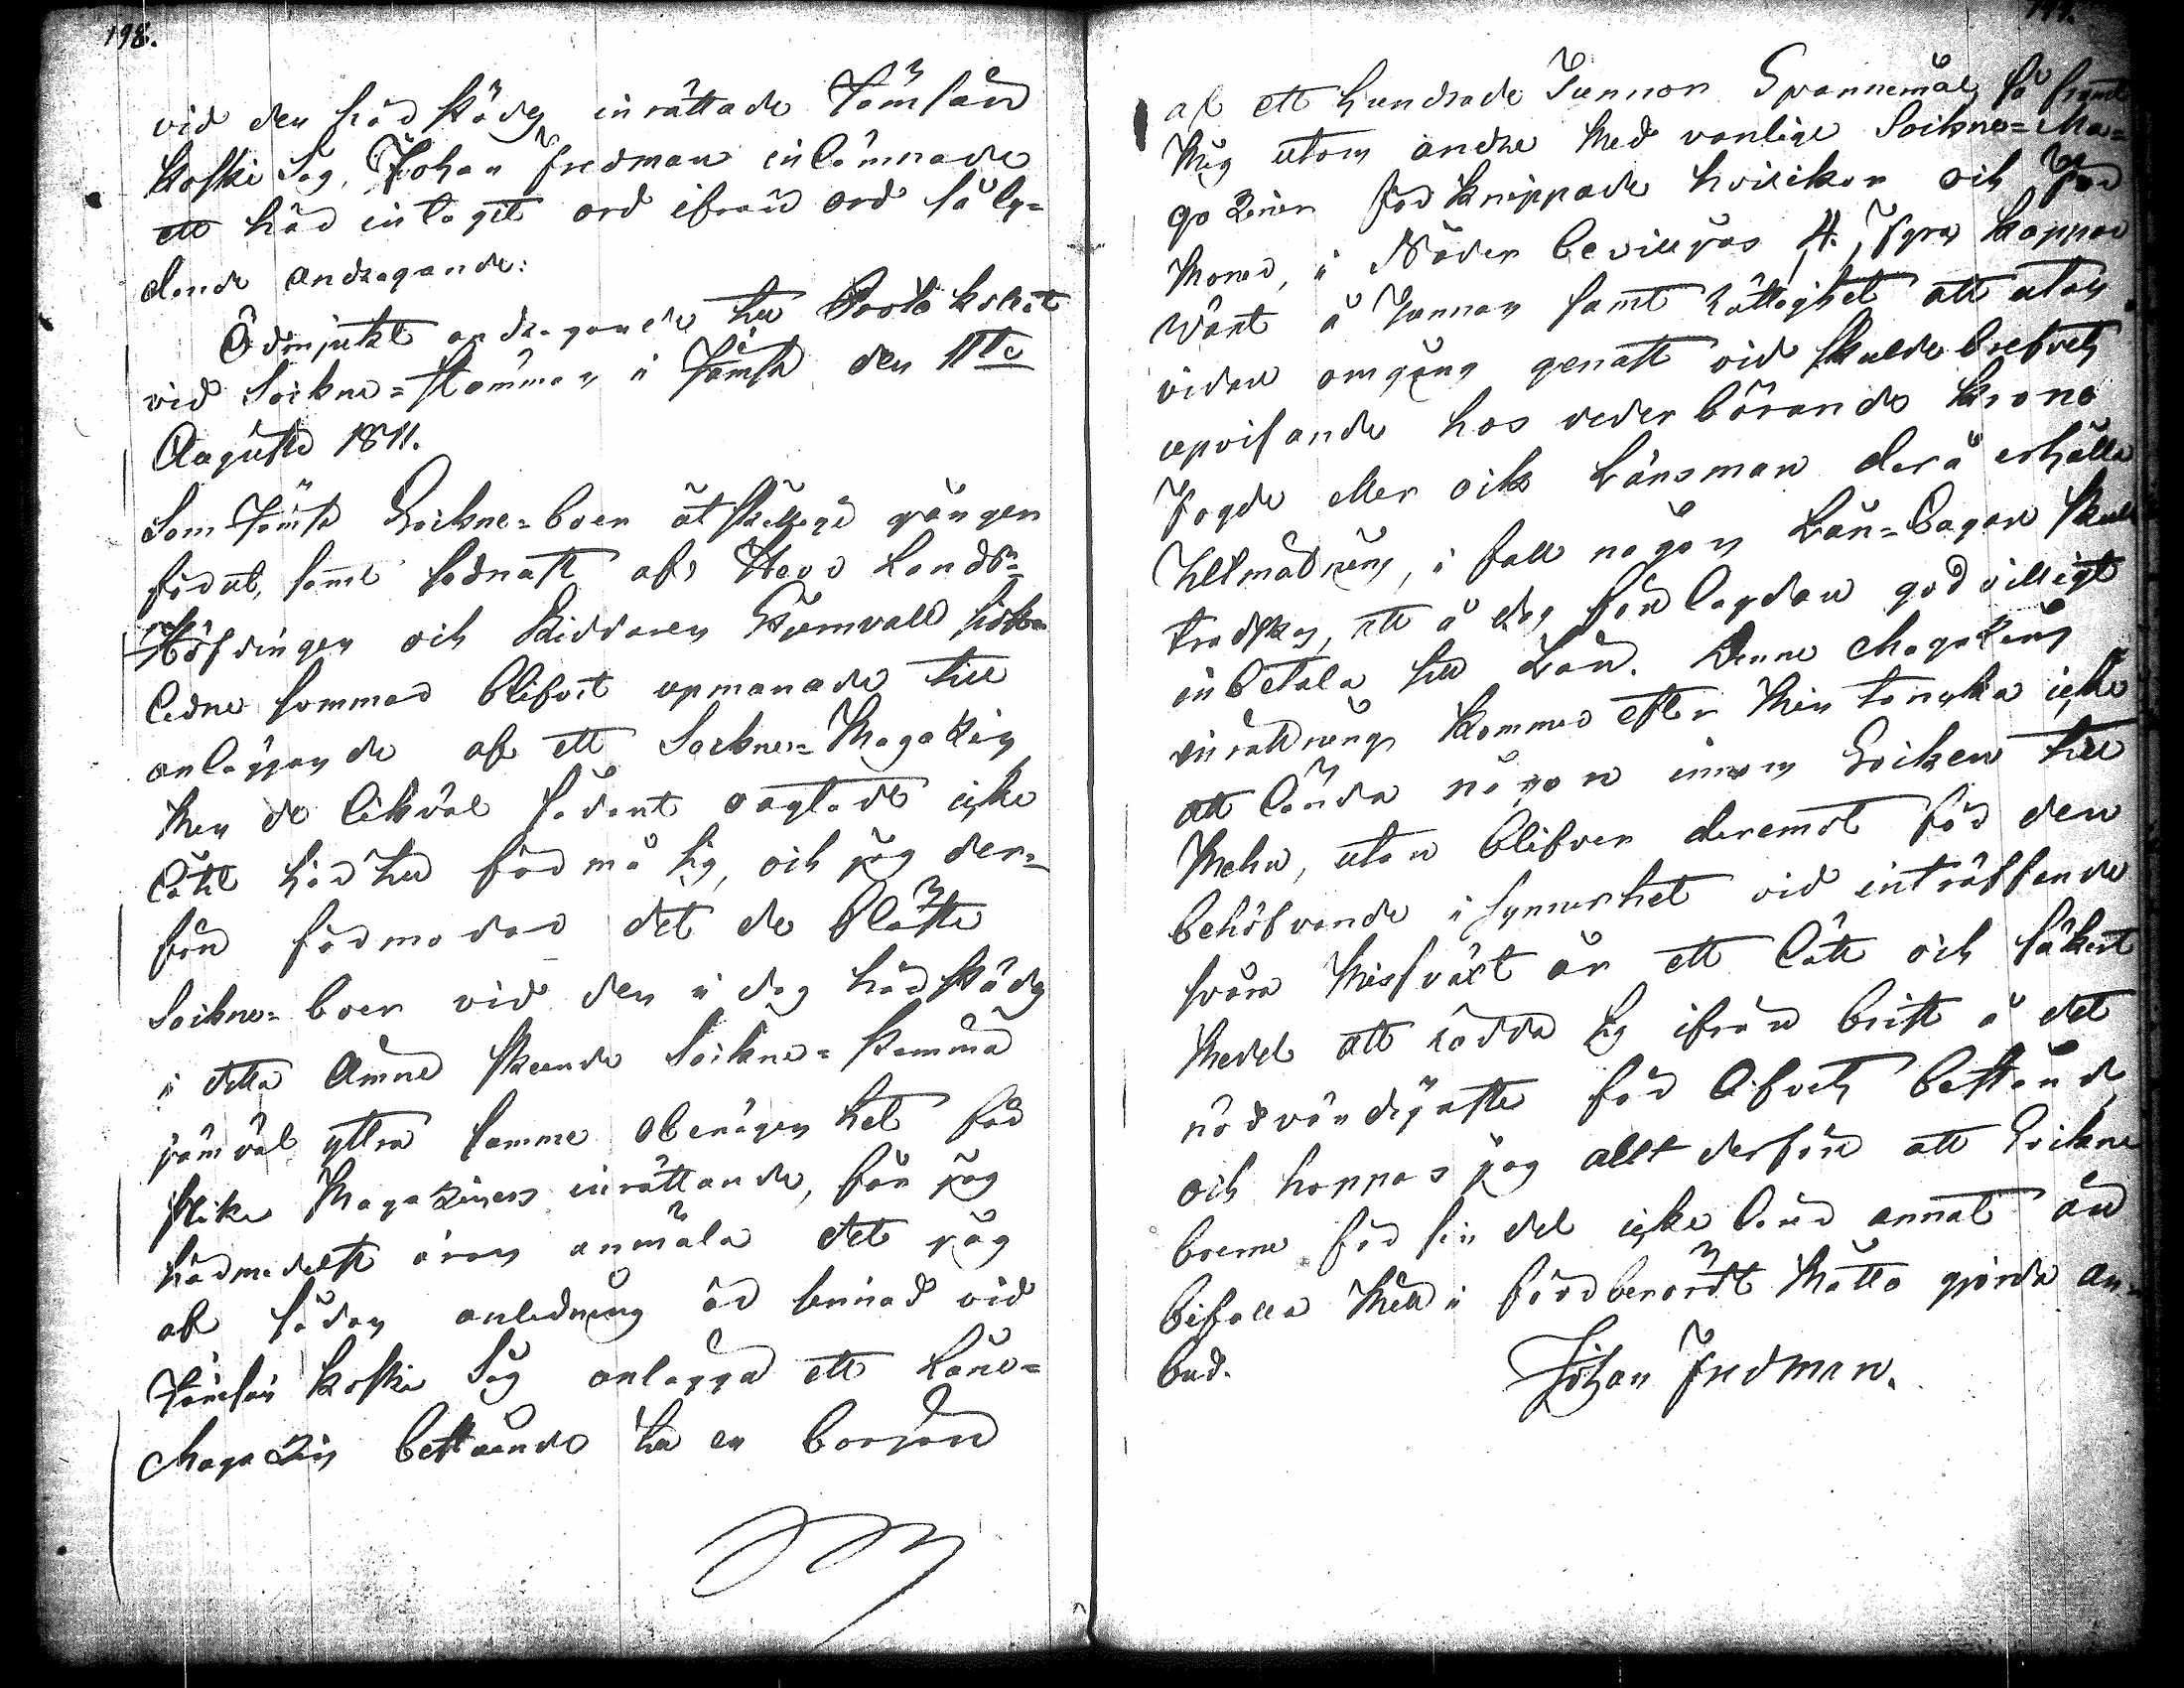 198.
vid den här städes inrättade Jämsän
Koski Såg, Johan Fredman inlämnade
ett här intagit ord ifrån ord så ly-
dande andragande:
Ödmjukt andragande till Protokollet
vid Sockne-Stämman i Jämsä den 11te
Augusti 1811.
Som Jämsä Sockne-boer åtskillige gånger
förut, samt sednast af Herr Lands-
Höfdingen och Riddaren Stjernvall sidst-
ledne sommar blifvit upmanade till
anläggande af ett Sockne-Magazin
Men de likväl sådant oagtadt icke
låtit härtill förmå sig, och jag der-
före förmodar det de fläste
Sockne-boer vid den i dag härstädes
i detta Ämne skeende Sockne-Stämma
jämväl yttra samma obenägenhet för
slike Magaziners inrättande, får jag
härmedelst äran anmäla det jag
af sådan anledning är sinnad vid
Jämsän Koski Såg anlägga ett Låne-
Magazin bestående till en början
199.
af ett hundrade Tunnor Spannemål, så framt
Mig utom andre Med vanlige Sockne-Ma-
gaziner förknippade hvilikor och För
Moner, i Nåder beviljas 4, Fyra Kappar
växt å Tunnan samt rättighet att utan
vidare omgång genast vid skuldebrefvets
upvisande hos vederbörande Krono
Fogde eller ock Länsman derå erhålla
Utmätning, i fall någon Lån-Tagare skulle
tredskas, att å dag förelagdan godvilligt
inbetala sitt Lån. Denne Magazins
inrättning kommer efter Min tanka icke
att lända någon innom Socken till
Mehn, utan blifver deremot för den
behöfvande i synnerhet vid inträffande
svåra Missväxt år ett lätt och säkert
Medel att rädda sig ifrån brist å det
nödvändigaste för lifvets bestånd,
och hoppas jag allt derföre att Sockne
boerne för sin del icke lärer annat än
bifalla Mitt i förberördt Måtto gjorde an-
bud.
Johan Fredman.